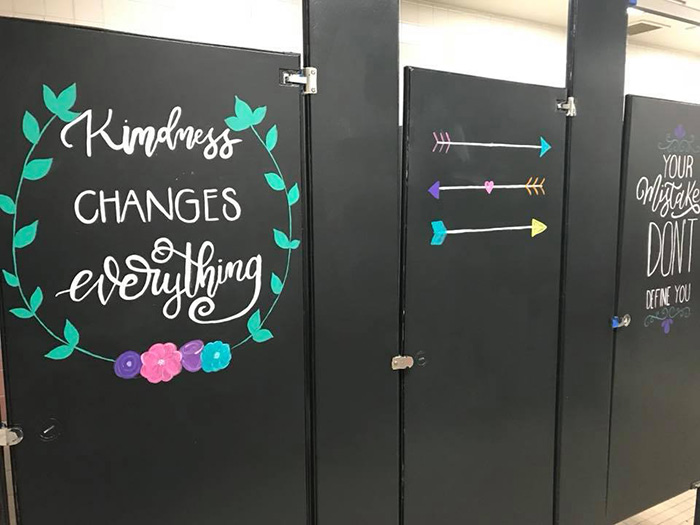 Kindness
CHANGES
everything
YOUR
Mistake
DON'T
DEFINE YOU